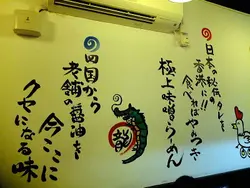 日本の秘伝のタレを
香港に!!
食べればわかるさ
極上味噌らーめん
四国から
老舗の醤油を
今ここに
クセになる味